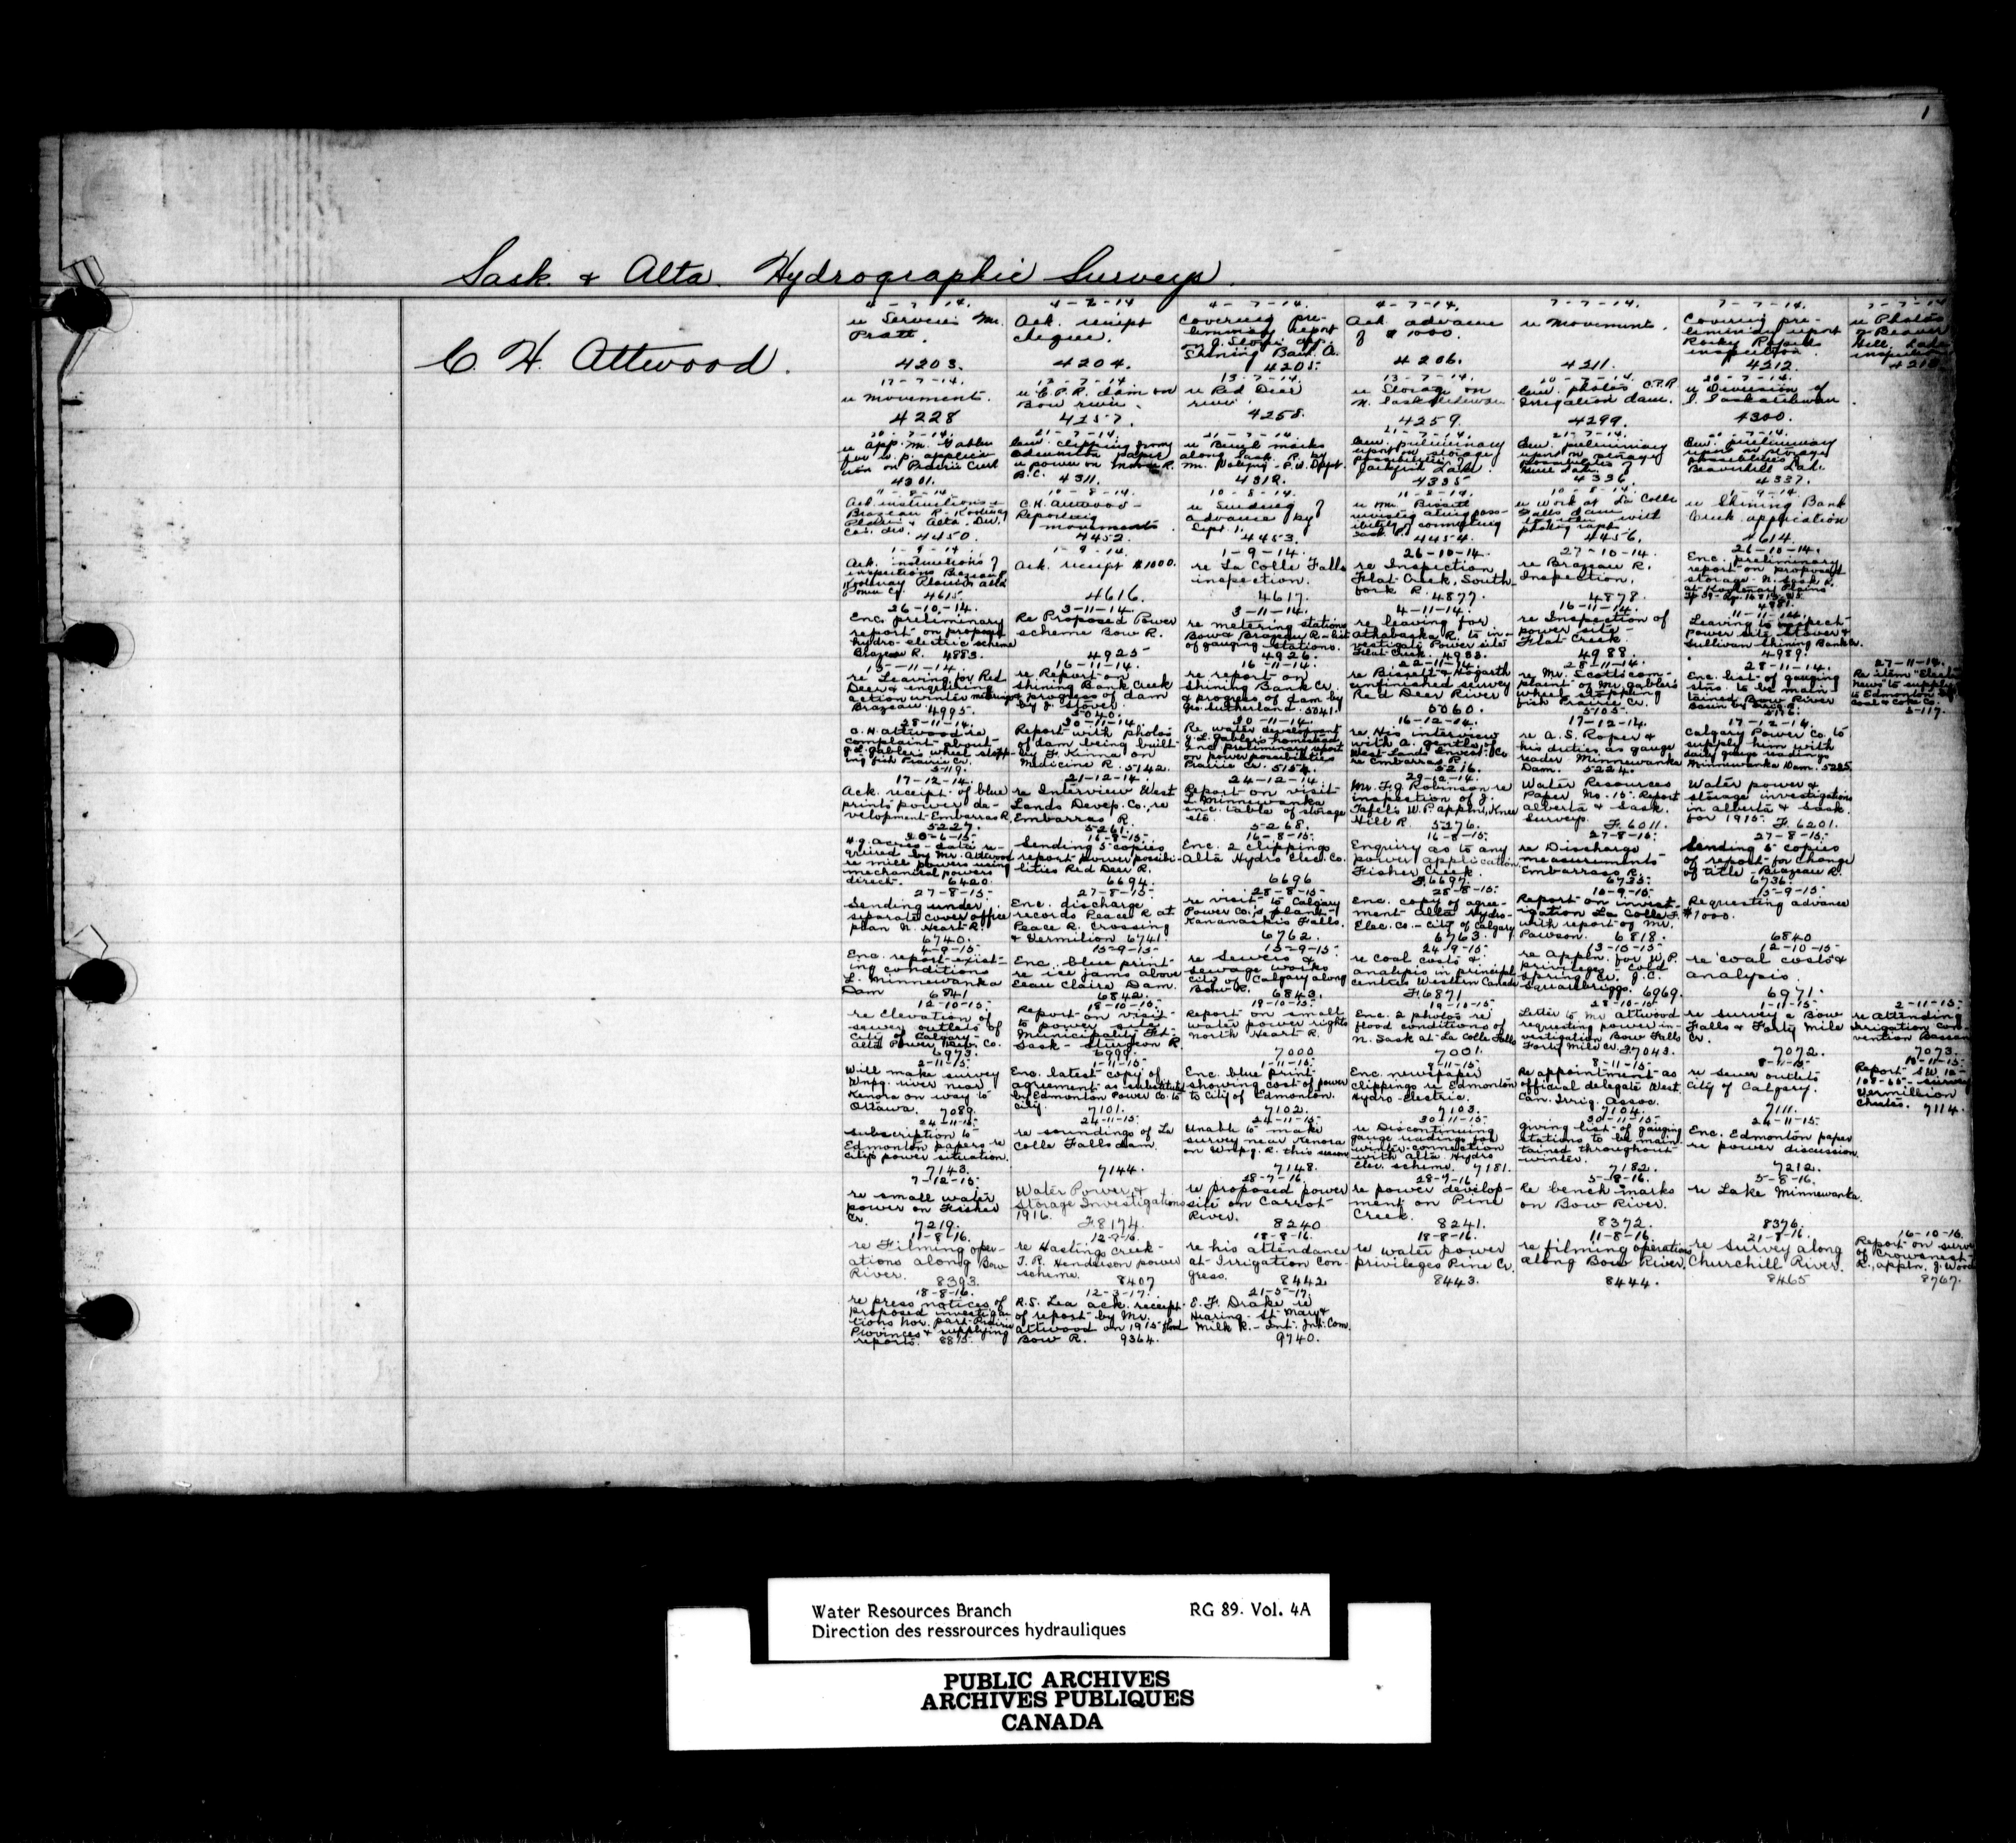 1
Sask. & Alta. Hydrographic Surveys.
C. H. Attwood.
4-7-14.
re Services Mr.
Pratt.
4203.
4-7-14
Ack. receipt
cheque.
4204.
4-7-14.
Covering pre-
liminary report
Shining Bank
4205.
4-7-14.
Ack. advance
of $1000.
4206.
7-7-14.
re Movements.
4211.
7-7-14.
Covering pre-
liminary report
Rocky Rapids
inspection.
4212.
7-7-14
re Photos
of Beaver
Hill Lake
inspection
17-7-14.
re Movements.
4228
13-7-14.
re C.P.R. dam on
Bow river.
4257.
13-7-14.
re Red Deer
river.
4258.
13-7-14.
re Storage on
N. Saskatchewan
4259.
photos C.P.R
Irrigation dam.
4299.
20-7-14.
re Division of
S. Saskatchewan.
4300.
20-7-14.
re app. Mr. Gabler
for w. p. applica-
tion on Prairie Creek
4301.
21-7-14.
clipping from
Edmonton paper
re power on R.
B.C. 4311.
21-7-14
re Bench marks
along Sask. R. by
Mr. - P.W. Dept.
4312.
21-7-14.
preliminary
report on storage
possibilities of
Jackfish Lake.
4335
21-7-14.
preliminary
report on storage
possibilities of
4336
preliminary
report on storage
possibilities
Beaverhill Lake.
4337.
Ack. instructions
Brazeau R. - Kootenay
Plains & Alta.
4450.
10-8-14.
C.H. Attwood -
Reporting
movements.
4452.
10-8-14.
re Sending of
advance by
Sept. 1.
4453.
11-8-14.
re Mr. Bissett
4454.
10-8-14.
re Work at La Colle
Falls dam
4456.
re Shining Bank
Creek application
4614.
1-9-14.
Ack. instructions of
inspections Brazeau &
Kootenay Plains
Power Co. 4615.
1-9-14.
Ack. receipt $1000.
4616.
1-9-14.
re La Colle Falls
inspection.
4617.
26-10-14.
re Inspection
Flat Creek, South
fork R. 4877.
27-10-14.
re Brazeau R.
Inspection.
4878.
26-10-14.
Enc. preliminary
report on proposed
storage - N. Sask R.
at Kootenay Plains
4881.
26-10-14.
Enc. preliminary
report on proposed
hydro-electric scheme
Brazeau R. 4883.
3-11-14.
Re Proposed Power
scheme Bow R.
4925
3-11-14.
re metering stations
Bow & Brazeau R - list
of gauging stations.
4926.
4-11-14.
re leaving for
Athabaska R. to in-
vestigate Power site
Flat Creek. 4983.
16-11-14.
re Inspection of
power site -
Flat Creek.
4988.
11-11-14.
Leaving to inspect
power site Stover &
Sullivan Shining Bank
4989.
15-11-14.
re Leaving for Red
Deer & enquiring
action winter meterings
Brazeau. 4995.
16-11-14.
re Report on
Shining Bank Creek
& progress of dam
by J. Stover.
5040.
16-11-14.
re report on
Shining Bank Cr.
& progress of dam by
Geo. Sutherland. 5041.
22-11-14.
re Bissett & Hogarth
unfinished survey
Red Deer River
5060.
28-11-14.
re Mr. Scott's com-
plaint of Mr. Gabler's
wheel stopping
fish Prairie Cr.
5105.
28-11-14.
Enc. list of gauging
stns. to be main-
tained Bow River
Basin
5116.
27-11-14.
Re item "Electrical
News" to supply
to Edmonton by
Coal & Coke Co.
5117.
28-11-14.
C. H. Attwood re
complaint about
G. L. Gabler's wheel stopp-
ing fish Prairie Cr.
5119.
30-11-14.
Report with photos
of dam being built
by F. Kinna on
Medicine R. 5142.
30-11-14.
Re water development
G. L. Gabler's homestead
and preliminary report
on power possibilities
Prairie Cr. 5154.
16-12-14.
re His interview
with A. Gentle of
West Lands Invest. Co.
re Embarras R.
5216.
17-12-14.
re A. S. Roper &
his duties as gauge
reader Minnewanka
Dam. 5224.
17-12-14.
Calgary Power Co. to
supply him with
daily gauge readings
Minnewanka Dam. 5225
17-12-14.
Ack. receipt of blue
prints power de-
velopment Embarras R.
5227.
21-12-14.
re Interview West
Lands Devep. Co., re
Embarras R.
5261.
24-12-14.
Report on visit
L. Minnewanka
enc. table of storage
etc.
5268.
29-12-14.
Mr. F. G. Robinson re
inspection of J.
Tafel's W.P. appln., Knee
Hill R. 5276.
Water Resources
Paper No. 15. Report
Alberta & Sask.
Surveys. F. 6011.
Water power &
storage investigations
in Alberta & Sask.
for 1915. F. 6201.
20-6-15.
H.G. Acres - data re-
quired by Mr. Attwood
re mill powers using
mechanical powers
direct. 6420.
16-8-15.
Sending 5 copies
report power possibi-
lities Red Deer R.
6694.
16-8-15.
Enc. 2 clippings
Alta Hydro Elec. Co.
6696
16-8-15.
Enquiry as to any
power application
Fisher Creek.
F. 6697.
27-8-15.
re Discharge
measurements
Embarrass R.
6735.
27-8-15.
Sending 5 copies
of report for change
of title - Brazeau R.
6736.
27-8-15.
Sending under
separate cover office
plan N. Heart R.
6740.
27-8-15.
Enc. discharge
records Peace R. at
Peace R. Crossing
& Vermilion 6741.
28-8-15.
re visit to Calgary
Power Co.'s plant
Kananaskis Falls.
6762.
28-8-15.
Enc. copy of agree-
ment Alta Hydro-
Elec. Co. - City of Calgary
6763.
10-9-15.
Report on invest-
igation La Colle F.
with report of Mr.
Pawson. 6818.
15-9-15
Requesting advance
$1000.
6840
4-9-15.
Enc. report exist-
ing conditions
L. Minnewanka
Dam 6841
15-9-15.
Enc. blue print
re ice jams above
Eau Claire Dam.
6842.
15-9-15.
re sewers &
sewage works
City of Calgary along
Bow R. 6843.
24-9-15.
re coal costs &
analysis in principal
centres Western Canada
F. 6871
13-10-15.
re appln. for W.P.
privileges - Cold
Spring Cr. J. A.
Squarebriggs. 6969.
12-10-15
re coal costs &
analysis.
6971.
12-10-15.
re Elevation of
sewer outlets of
City of Calgary -
Alta Power Co.
6973.
18-10-15.
Report on visit
to power site
Municipality Ft.
Sask - Sturgeon R.
6999.
19-10-15.
Report on small
water power rights
North Heart R.
7000
19-10-15.
Enc. 2 photos re
flood conditions of
N. Sask at La Colle Falls
7001.
28-10-15
Letter to Mr Attwood
requesting power in-
vestigation Bow Falls
Forty Mile Cr. F. 7043.
1-11-15.
re survey a Bow
Falls & Forty Mile
Cr.
7072.
2-11-15.
re attending
Irrigation Con-
vention Bassano
7073.
2-11-15.
Will make survey
Wnpg. river near
Kenora on way to
Ottawa. 7089.
1-11-15.
Enc. latest copy of
agreement as substituted
by Edmonton Power Co. to
City. 7101.
1-11-15.
Enc. blue print
showing cost of power
to City of Edmonton.
7102.
8-11-15.
Enc. newspaper
clippings re Edmonton
Hydro-Electric.
7103.
8-11-15.
Re appointment as
official delegate West.
Can. Irrig. Assoc.
7104.
8-11-15.
re sewer outlets
City of Calgary.
7111.
Report
survey
Vermillion
Chutes. 7114.
24-11-15.
subscription to
Edmonton papers re
city's power situation.
7143.
24-11-15.
re soundings of La
Colle Falls dam.
7144.
24-11-15.
Unable to make
survey near Kenora
on Wnpg. R. this season
7148.
30-11-15.
re Discontinuing
gauge readings for
winter - connection
with Alta. Hydro
Elec. scheme. 7181.
30-11-15.
giving list of gauging
stations to be main-
tained throughout
winter.
7182.
24-11-15.
Enc. Edmonton paper
re power discussion.
7212.
7-12-15.
re small water
power on Fisher
Cr.
7219.
Water Power &
Storage Investigations
1916.
F. 8174.
28-7-16.
re proposed power
site on Carrot
River.
8240
28-7-16.
re power develop-
ment on Pine
Creek.
8241.
5-8-16.
Re bench marks
on Bow River.
8372.
5-8-16.
re Lake Minnewanka.
8376.
11-8-16.
re Filming oper-
ations along Bow
River.
8393.
re Hastings Creek -
T. R. Henderson power
scheme.
8407
18-8-16.
re his attendance
at Irrigation Con-
gress.
8442
18-8-16.
re water power
privileges Pine Cr.
8443.
11-8-16.
re filming operations
along Bow River.
8444.
21-8-16.
re survey along
Churchill River.
8465
16-10-16.
Report on survey
of Crowsnest
R., appln. J. Wood
8767.
18-8-16.
re press notices of
proposed investiga-
tions Nor. part Prairie
Provinces & supplying
reports. 8815.
12-3-17.
R.S. Lea ack. receipt
of report by Mr.
Attwood on 1915 flood
Bow R. 9364.
21-5-17.
E. F. Drake re
Hearing - St. Mary &
Milk R. - Int. Jnt. Com.
9740.
Water Resources Branch RG 89. Vol. 4A
Direction des ressrources hydrauliques
PUBLIC ARCHIVES
ARCHIVES PUBLIQUES
CANADA